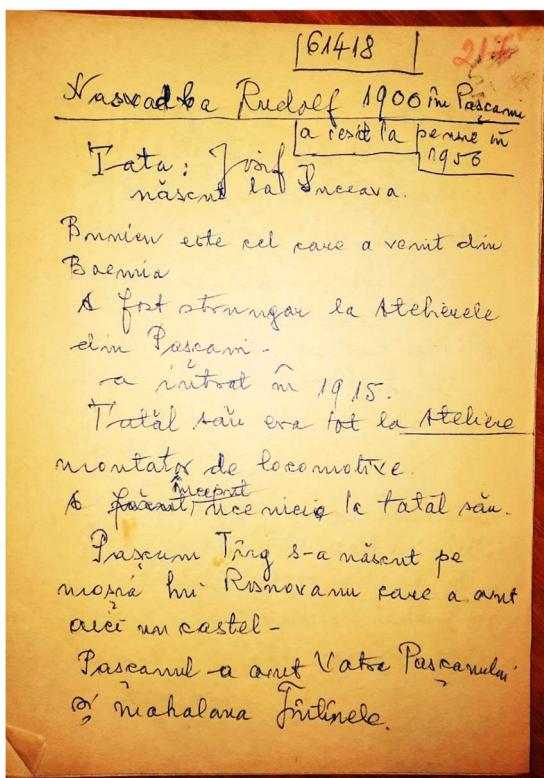 61418
217
Nasvadba Rudolf 1900 în Pașcani
a ieșit la pensie în
1956
Tata: Josif
născut la Suceava.
Bunicu este cel care a venit din
Boemia
A fost strungar la Atelierele
din Pașcani -
a intrat în 1915.
Tatăl său era tot la Ateliere
montator de locomotive.
început
A făcut ucenicia la tatăl său.
Pașcani Tîrg s-a născut pe
moșia lui Rosnovanu care a avut
aici un castel -
Pașcanul - a avut Vatra Pașcanului
și mahalaua Fîntînele.